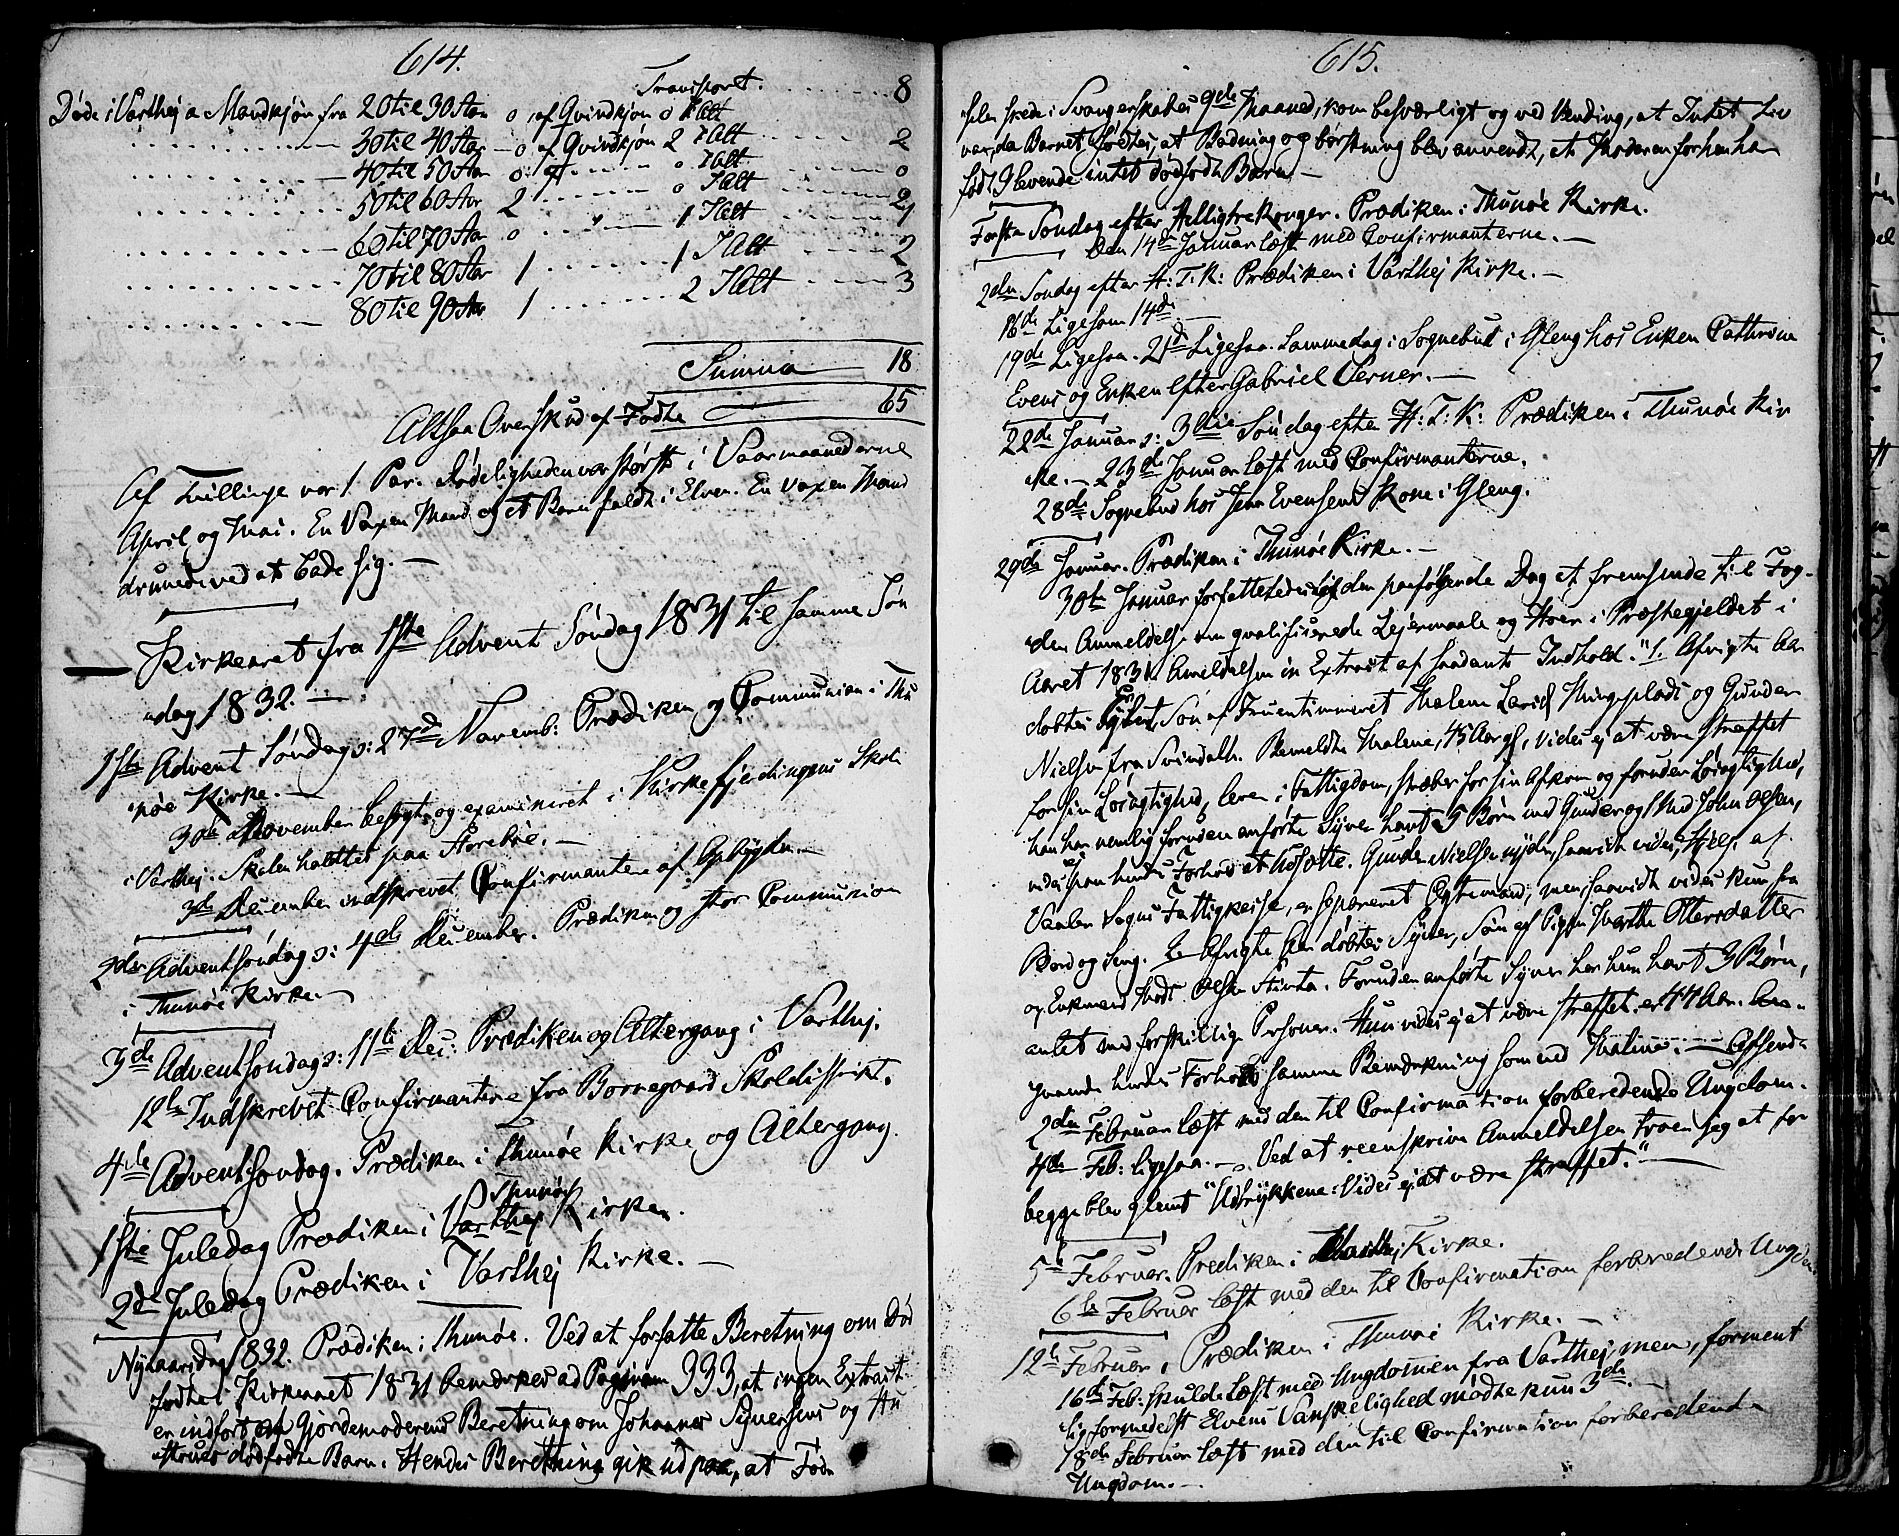 614.
Transport. 8
Døde i Varthej a Mandkjøn fra 20 til 30 Aar 0, af Qvindkjøn 0 I Alt
30 til 40 Aar 0 af Qvindkjøn 2 I Alt 2
40 til 50 Aar 0 0 I Alt 0
50 til 60 Aar 2 0 I Alt 2
60 til 70 Aar 0 1 I Alt 1
70 til 80 Aar 1 1 I Alt 2
80 til 90 Aar 1 2 I Alt 3
Summa 18
Altsaa Overskud af Fødte 65
Af Tvillinge var 1 Par. Dødeligheden var størst i Vaarmaanederne
April og Mai. En Voxen Mand og et Barn faldt i Elven. En voxen Mand
druknede ved at bade sig.
Kirkeaaret fra 1ste Advent Søndag 1831 til samme Søn
dag 1832.
1ste Advent Søndag s: 27de Novemb: Prædiken og Communion i Thu
nøe Kirke.
30te November besøgt og examineret i Kirkefjerdingens Skole
i Varthej. Skolen holdtes paa Storebøe.
3de December indskrevet Confirmantere af
2den Adventsøndag s: 4de December. Prædiken og stor Communion
i Thunøe Kirke.
3de Adventsøndag s: 11te Dec: Prædiken og Altergang i Varthej.
12te Indskrevet Confirmantere fra Borregaard Skoledistrict.
4de Adventsøndag. Prædiken i Thunøe Kirke og Altergang.
Thunøe
1ste Juledag Prædiken i Varthej Kirke.
2de Juledag Prædiken i Varthej Kirke.
Nytaarsdag 1832. Prædiken i Thunøe. Ved at forfatte Beretning om Død
fødte i Kirkeaaret 1831 bemærkes ad Paginam 333, at ingen Extract
er indført af Gjordemoderens Beretning om Johannes Syversens og Hu
struens dødfødte Barn. Hendes Beretning gik ud paa, at Føds
615.
selen skede i Svangerskabets 9de Maaned, kom besværligt og ved Vending, at Intet Liv
var, da Barnet fødtes, at Badning og børstning blev anvendt, at Moderen forhen har
født 9 levende intet dødfødt Barn.
Første Søndag efter Helligtrekonger. Prædiken i Thunøe Kirke.
Den 14de Januar læst med Confirmanterne.
2den Søndag efter H: T: K: Prædiken i Varthej Kirke.
16de Ligesom 14de
19de Ligesaa. 21de Ligesaa. Sammedag i Sognebud i Gleng hos Enken Cathrine
Evens og Enken efter Gabriel Verner.
22de Januar s: 3die Søndag efter H: T: K: Prædiken i Thunøe Kir
ke. 23de Januar læst med Confirmanterne.
28de Sognebud hos Jens Evensens Kone i Gleng.
29de Januar. Prædiken i Thunøe Kirke.
30te Januar forfattedes og den paafølgende Dag at fremsende til Fog-
den Anmeldelse om qvalificerede Lejermaale og Hoer i Præstegjeldet i
Aaret 1831. Anmeldelsen in Extract af saadant Indhold. "1. Afvigte Aar
døbtes Søn af Fruentimmeret Malene Larsd Myngeplads og Gunder
Nielsen fra Svindalh. Bemeldte Malene, 45 Aar gl, vides ej at være straffet
for sin Løsagtighed, lever i Fattigdom, stræber for sin Afkom og foruden Løsagtighed,
hun har nemlig foruden anførte Syver havt 5 Børn med Gunder og 1 med John Olsen,
vides paa hendes Forhold et Gunder Nielsen nyder, saavidt vides, Hjelp af
Vaaler Sogns Fattigkasse, er separeret Egtemand, men saavidt vides kun fra
Bord og Seng. 2. Afvigte Aar døbtes Syver, Søn af Pigen Marthe Ottersdatter
og Enkemand Mads Olsen Foruden anførte Syver har hun havt 3 Børn,
avlet med forskjellige Personer. Hun vides ej at være straffet, er 44 Aar. An-
gaaende hendes Forhold samme Bemærkning som ved Malene. Afsendt
2den Februar læst med den til Confirmation forberedende Ungdom.
4de Feb: ligesaa. Ved at reenskrive Anmeldelsen troer jeg at for
begge blev glemt "Udtrykkene: Vides ej at være straffet."
5te Februar. Prædiken i Varthej Kirke.
6te Februar læst med den til Confirmation forberedende Ungdom.
12te Februar. Prædiken i Thunøe Kirke.
16de Feb: skulde læst med Ungdommen fra Varthej, men, forment
lig formedelst Elvens Vanskelighed mødte kun 3de.
18de Februar læst med den til Confirmation forberedende
Ungdom.